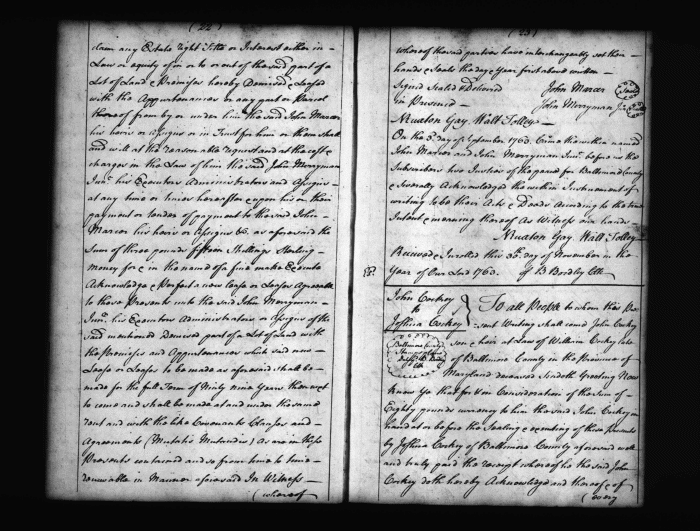 (22)
claim any Estate right Title or Interest either in
Law or equity of in or to or out of the said part of a
Lot of Land & Premises hereby Demised & Leased
with the Appurtenances or any part or Parcel
thereof from by or under him the said John Mercer
his heirs or Assigns or in Trust for him or them shall
and will at the reasonable request and at the cost &
charges in the Law of him the said John Merryman
Junr. his Executors Administrators and Assigns
at any time or times hereafter upon his or their
payment or tender of payment to the said John
Mercer his heirs or Assigns &c. as aforesaid the
Sum of three pounds fifteen Shillings Sterling
money for & in the name of a fine make Execute
Acknowledge & Perfect a new Lease or Leases Agreeable
to these Presents unto the said John Merryman
Junr. his Executors Administrators or Assigns of the
said mentioned Demised part of a Lot of Land with
the Premises and Appurtenances which said new
Lease or Leases to be made as aforesaid shall be
made for the full Term of Ninty nine Years thence next
to come and shall be made at and under the same
rent and with the like Covenants Clauses and
Agreements (Mutatis Mutandis) as are in these
Presents contained and so from time to time
renewable in Manner aforesaid In Witness
(whereof
(23)
whereof the said parties have interchangeably set their
hands & Seals the day & Year first above written
Signed Sealed & Delivered John Mercer
in Presence John Merryman Jr.
Nicaton Gay, Walt Tolley
On the 8th. day of September 1763. Came the within named
John Mercer and John Merryman Junr. before us the
Subscribers two Justices of the peace for Baltimore County
& severally Acknowledged the within Instrument of
writing to be their Acts & Deeds According to the true
Intent & meaning thereof As Witness our hands
Nicaton Gay Walt Tolley
Received & Enrolled this day of November in the
Year of Our Lord 1763. J B Bordley Clk
John Cockey
to
Joshua Cockey
To all People to whom this Pre-
sent Writing shall come John Cockey
Son & heir at Law of William Cockey late
of Baltimore County in the Province of
Maryland deceased sendeth Greeting Now
Know Ye that for & in Consideration of the Sum of
Eighty pounds currency to him the said John Cockey in
hand at or before the Sealing & executing of these Presents
by Joshua Cockey of Baltimore County aforesaid well
and truly paid the receipt whereof he the said John
Cockey doth hereby Acknowledge and thereof & of
(every